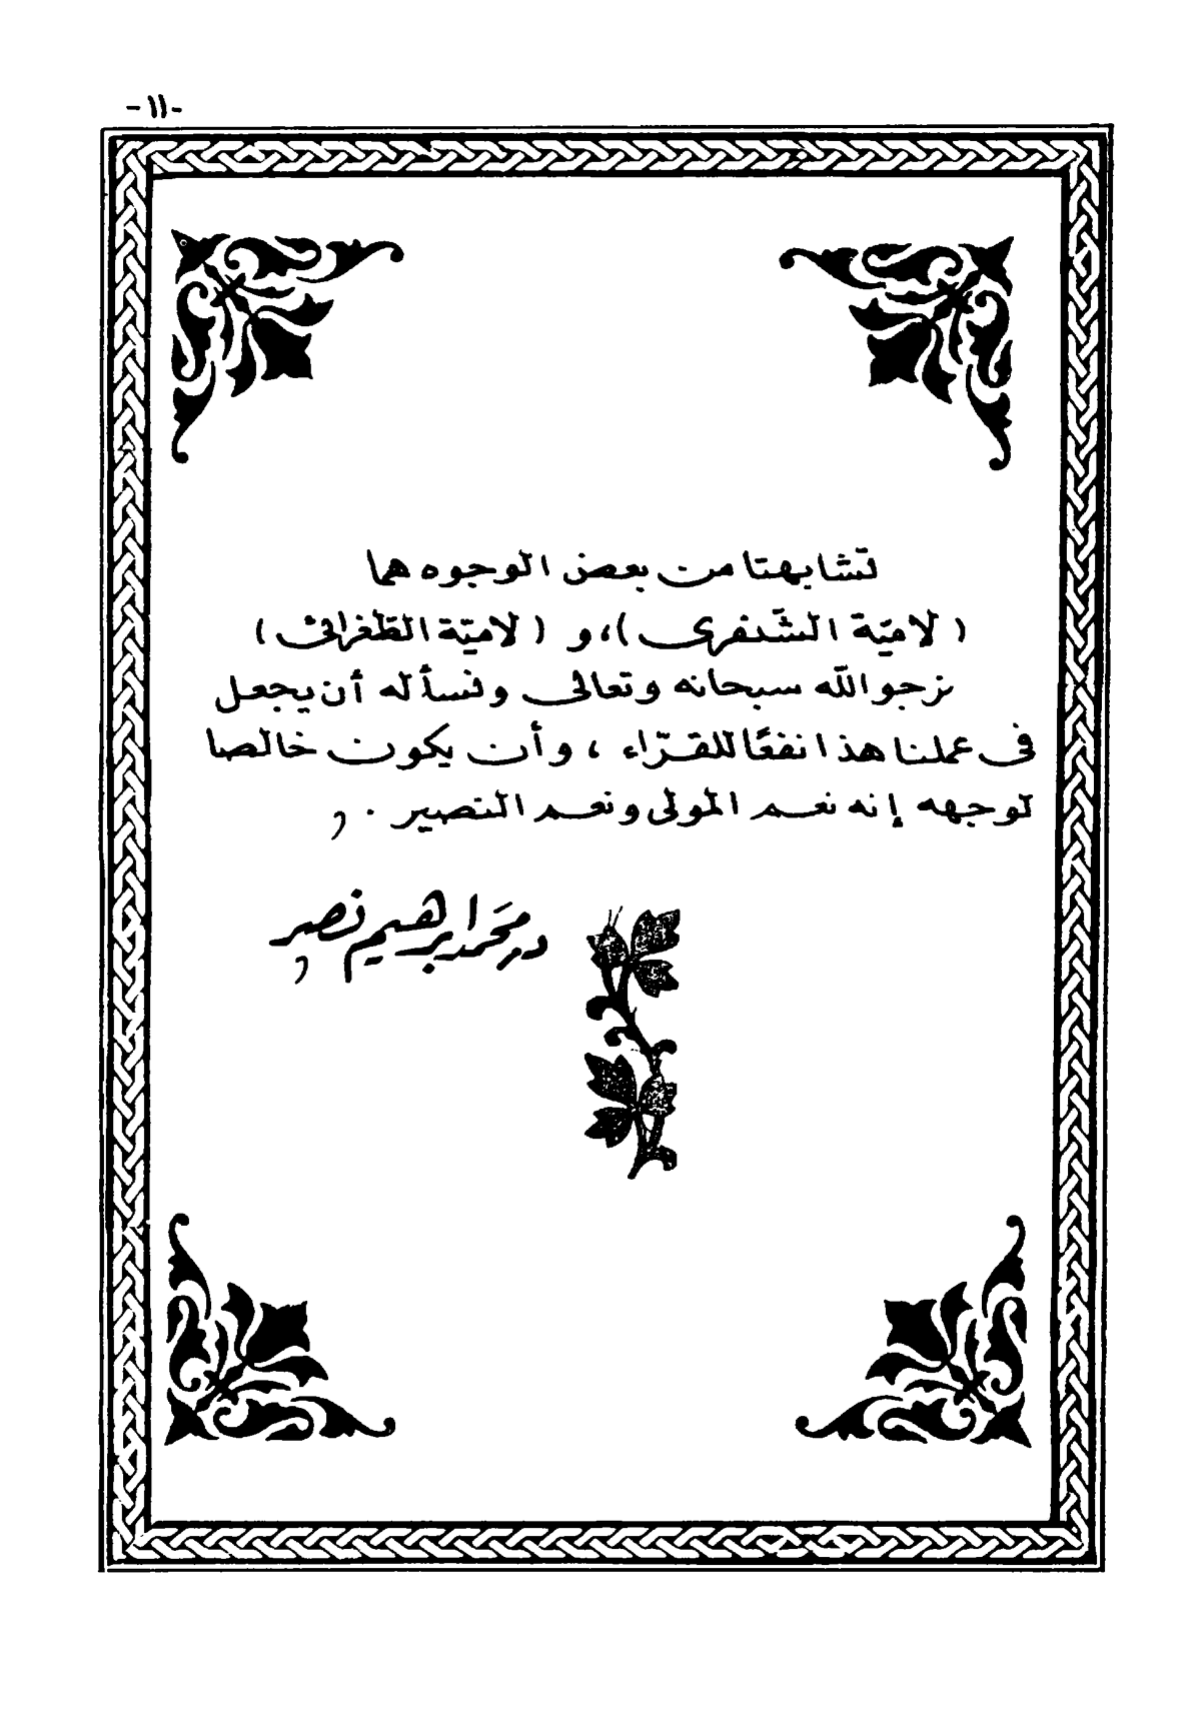 -١١-
تشابهتا من بعض الوجوه هما
(لاميّة الشّنفرى)،، و (لاميّة الطّغرائى)
نرجو الله سبحانه وتعالى ونسأله أن يجعل
فى عملنا هذا نفعًا للقرّاء، وأن يكون خالصا
لوجهه إنه نعم المولى ونعم النصير.
د. محمد ابراهيم نصر